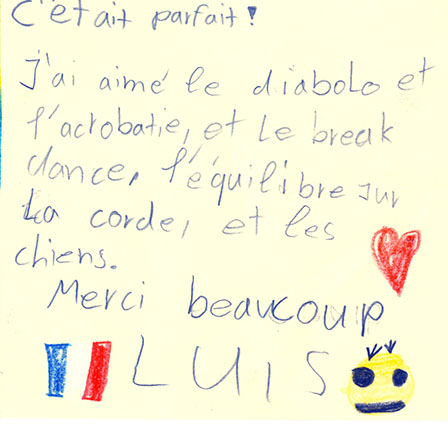 C'était parfait !
J'ai aimé le diabolo et
l'acrobatie, et le break
dance, l'équilibre sur
La corde, et les
chiens.
Merci beaucoup
LUIS